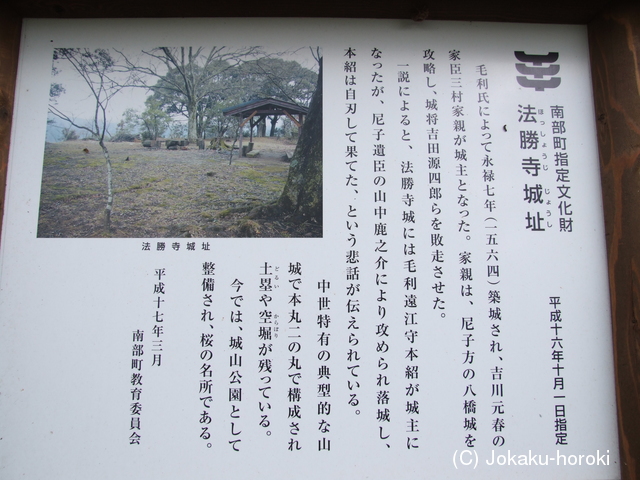 南部町指定文化財
平成十六年十月一日指定
法勝寺城址
ほっしょうじ じょうし
毛利氏によって永禄七年(一五六四)築城され、吉川元春の
家臣三村家親が城主となった。家親は、尼子方の八橋城を
攻略し、城将吉田源四郎らを敗走させた。
一説によると、法勝寺城には毛利遠江守本紹が城主に
なったが、尼子遺臣の山中鹿之介により攻められ落城し、
本紹は自刃して果てた、という悲話が伝えられている。
中世特有の典型的な山
城で本丸二の丸で構成され
土塁や空堀が残っている。
どるい からぼり
今では、城山公園として
整備され、桜の名所である。
平成十七年三月
南部町教育委員会
法勝寺城址
(C) Jokaku-horoki